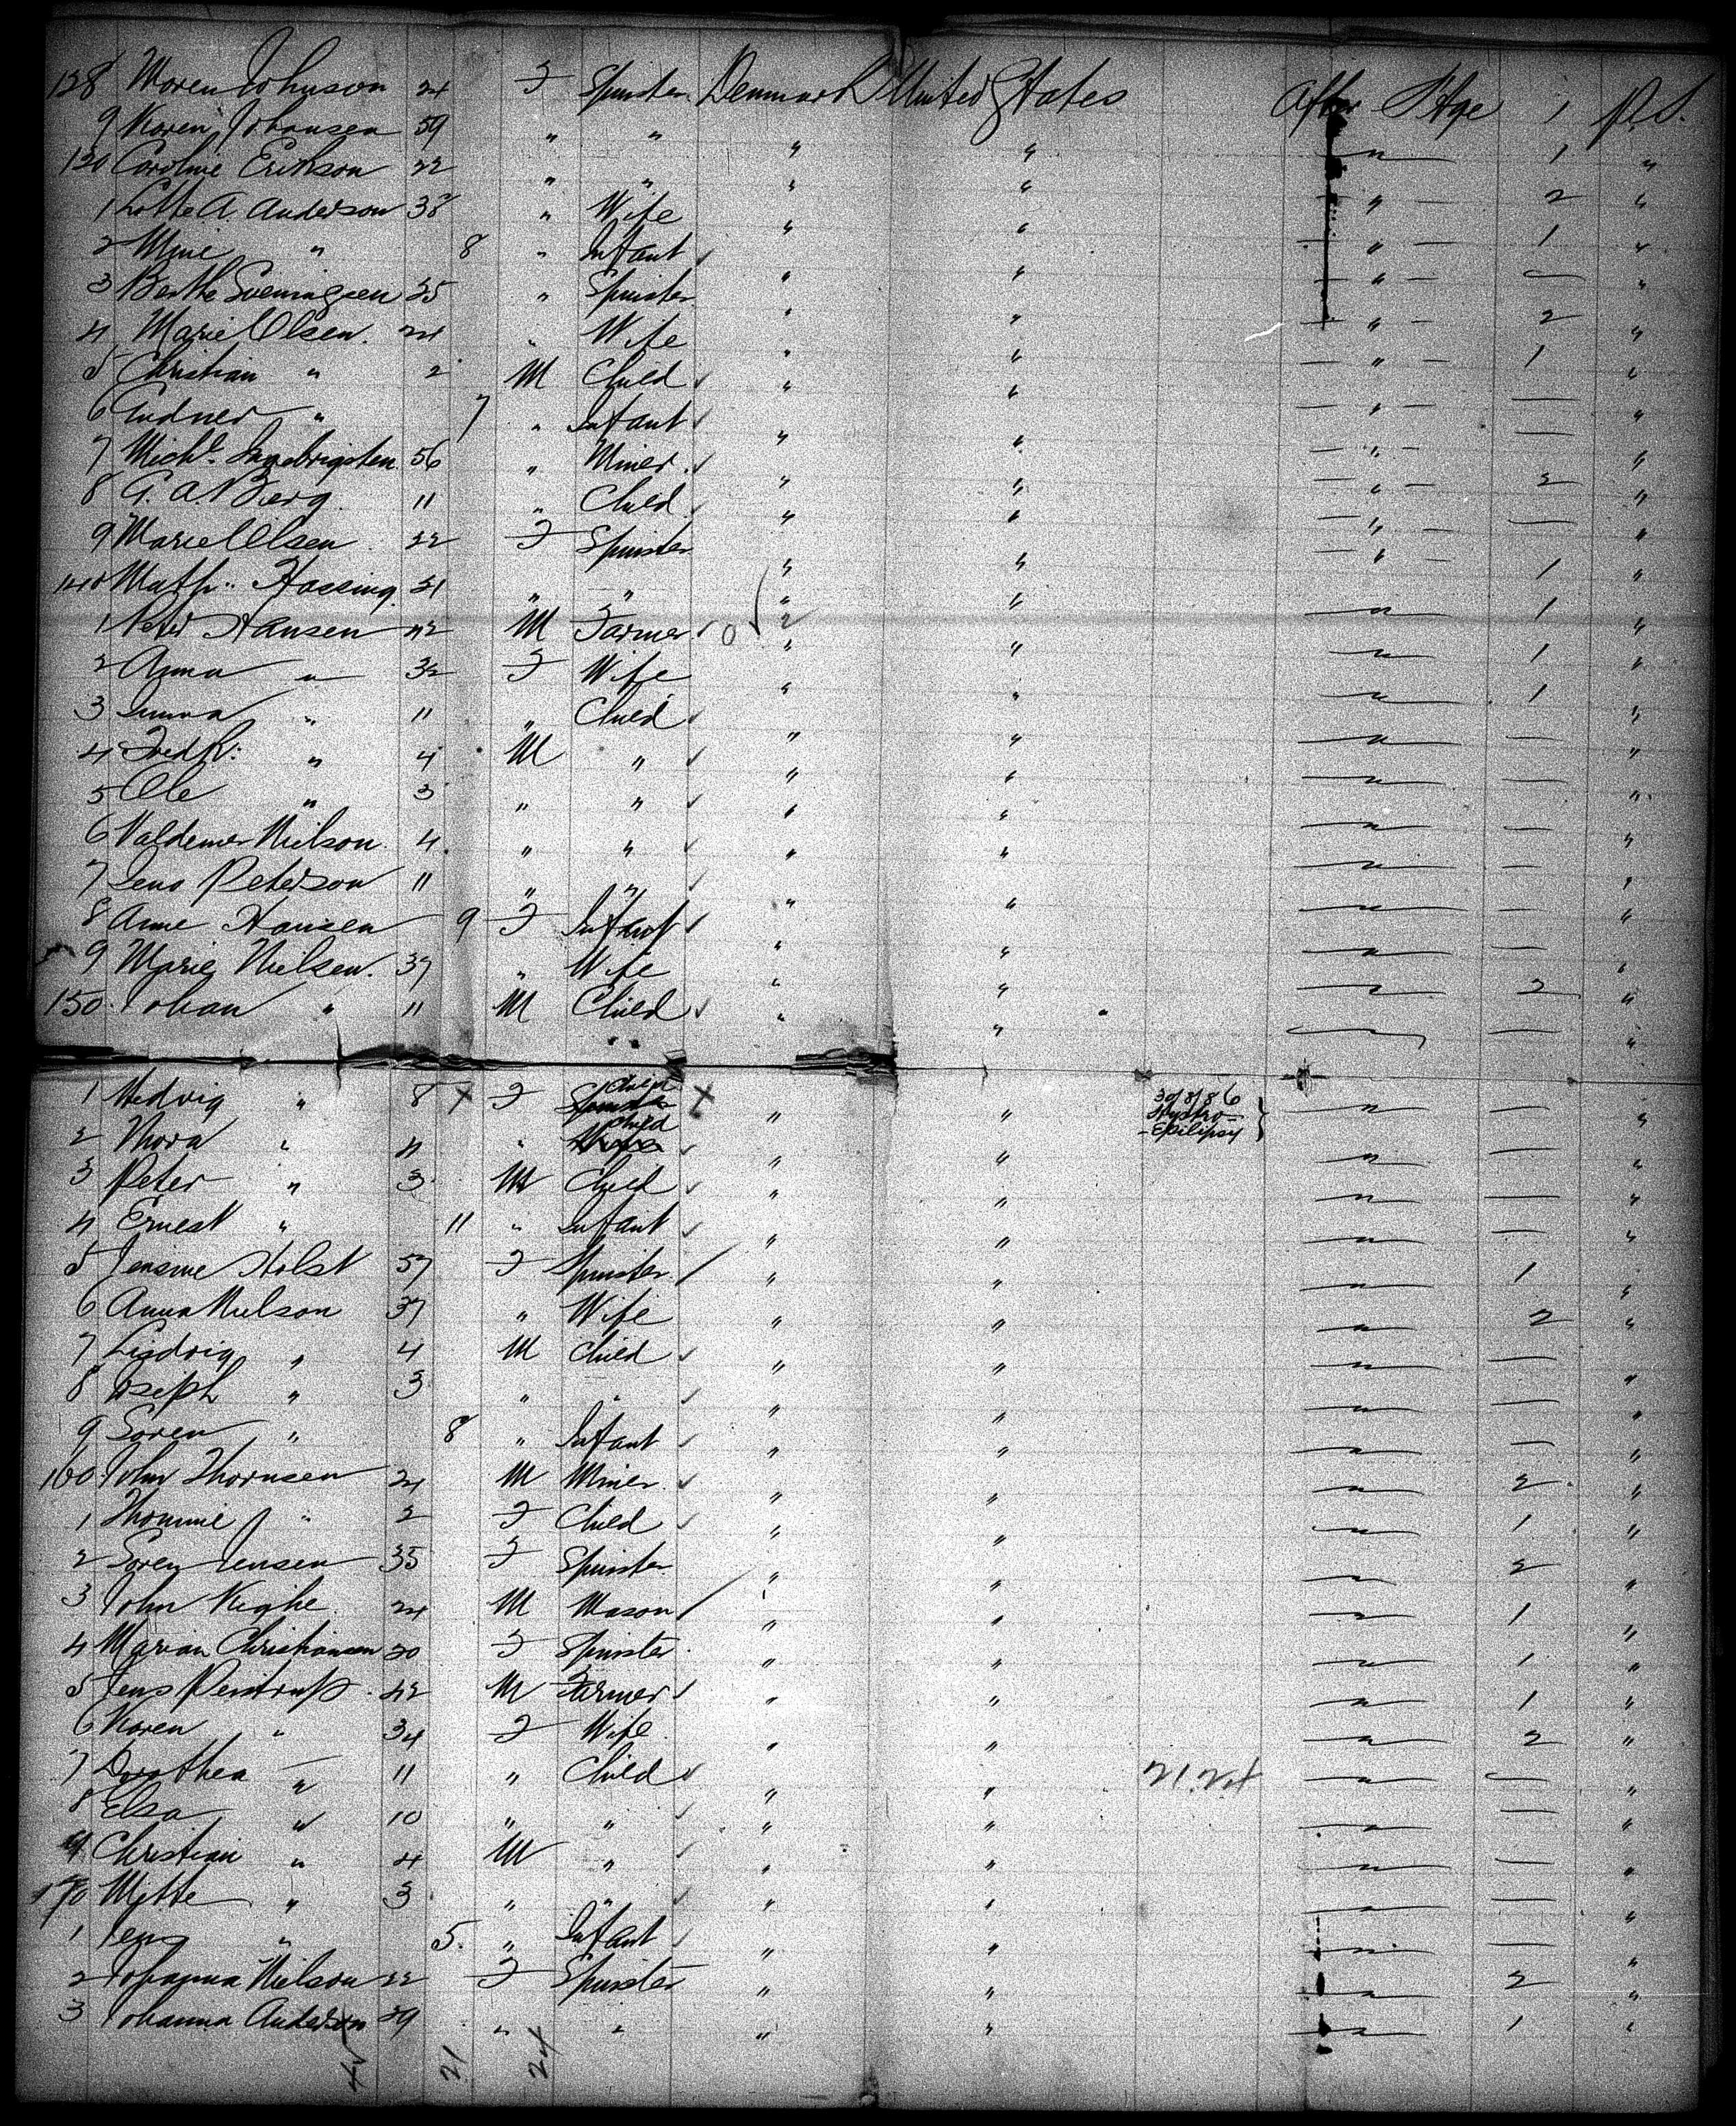 128 Maren Johnson 24 F Spinster Denmark United States After Stge 1 P.S.
9 Karen Johansen 59 " " " " " 1 "
130 Caroline Erikson 22 " " " " " 2 "
1 Lotte A. Anderson 38 " Wife " " " 1 "
2 Mine " 8 " Infant " " " — "
3 Berthe Sveningsen 35 " Spinster " " " 2 "
4 Marie Olsen. 24 " Wife " " " 1 "
5 Christian " 2 M Child " " " — "
6 " 7 " Infant " " " — "
7 Michl. Ingebrigsten 56 " Miner " " " 2 "
8 G. A. Berg. 11 " Child " " " — "
9 Marie Olsen 22 F Spinster " " " 1 "
140 Math: Hassing 21 " " " " " 1 "
1 Peter Hansen 42 M Farmer 0 " " " 1 "
2 Anna " 32 F Wife " " " 1 "
3 Emma " 11 " Child " " " — "
4 Fredk: " 4 M " " " " — "
5 Ole " 3 " " " " " — "
6 Valdemer Nielson 4 " " " " " — "
7 Jens Peterson 11 " " " " " — "
8 Anne Hansen 9 F Infant " " " — "
9 Marie Nielsen. 37 " Wife " " " 2 "
150 Johan " 11 M Child " " " — "
1 Hedvig " 8 X F Spinster Child X " " 30/8/86 Hystro-Epilipsy } " — "
2 Thora " 4 " Child " " " — "
3 Peter " 3 M Child " " " — "
4 Ernest " 11 " Infant " " " — "
5 Jensine Holst 57 F Spinster " " " 1 "
6 Anna Nielson 37 " Wife " " " 2 "
7 " 4 M Child " " " — "
8 Joseph " 3 " " " " " — "
9 Soren " 8 " Infant " " " — "
160 John Thornsen 24 M Miner " " " 2 "
1 Thommie " 2 F Child " " " 1 "
2 Soren Jensen 35 F Spinster " " " 2 "
3 John 24 M Mason " " " 1 "
4 Marian Christiansen 30 F Spinster " " " 1 "
5 Jens 42 M Farmer " " " 1 "
6 Karen " 34 F Wife " " " 2 "
7 Dorothea " 11 " Child " " 21.24 " — "
8 Elsa " 10 " " " " " — "
9 Christian " 4 M " " " " — "
170 Mette " 3 " " " " " — "
1 Jens " 5 " Infant " " " — "
2 Johanna Nielson 22 F Spinster " " " 2 "
3 Johanna Anderson 29 " " " " " 1 "
45 21 24